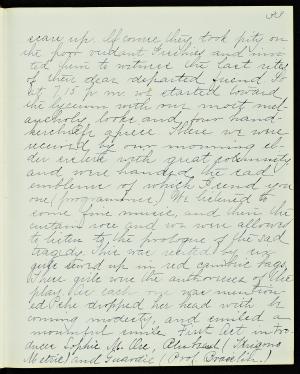 scare up. Of course they took pity on
the poor verdant Freshies and invi
ted them to witness the last rites
of their dear departed friend So
at 7.15 p m we started toward
the lyceum with our most mel
ancholy looks and four hand-
kerchiefs apiece. There we were
received by our mourning el-
der with great solemnity
and were handed the sad
emblems of which I send you
one (programmes). We listened to
some fine music, and then the
curtain rose and we were allowed
to listen to the prologue of the sad
tragedy. This was recited by six
girls stirred up in red cambric rags.
These girls were the authoresses of the
play, her each one was mention
ed she dropped her head with be
coming modesty, and smiled a
mournful smile. First let intro
duces Sophie M.
Metric) and Guardie (Prof.